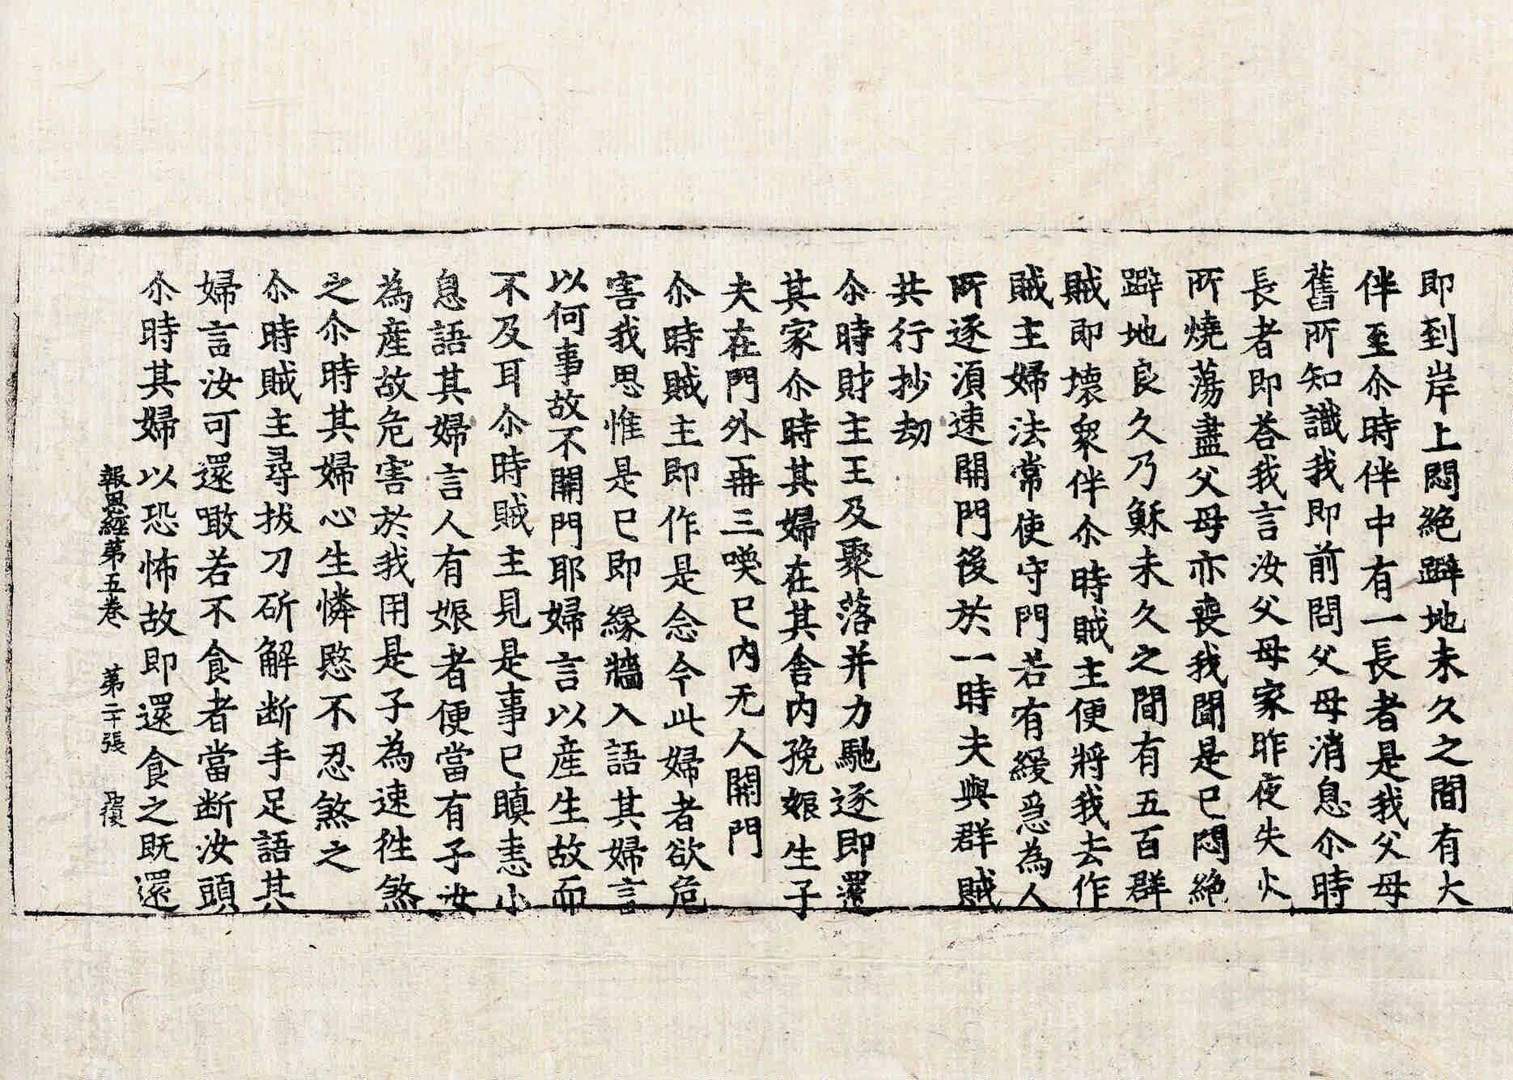 即到岸上悶絶躃地未久之間有大
伴至尒時伴中有一長者是我父母
舊所知識我即前問父母消息尒時
長者即荅我言汝父母家昨夜失火
所燒蕩盡父母亦喪我聞是已悶絶
躃地良久乃穌未久之間有五百群
賊即壞衆伴尒時賊主便將我去作
賊主婦法常使守門若有緩急為人
所逐湏速開門後於一時夫與群賊
共行抄劫
尒時財主王及聚落并力馳逐即還
其家尒時其婦在其舍內㝃娠生子
夫在門外再三喚已內无人開門
尒時賊主即作是念今此婦者欲危
害我思惟是已即緣牆入語其婦言
以何事故不開門耶婦言以產生故而
不及耳尒時賊主見是事已瞋恚小
息語其婦言人有娠者便當有子汝
為產故危害於我用是子為速徃煞
之尒時其婦心生憐愍不忍煞之
尒時賊主尋拔刀斫解断手足語其
婦言汝可還噉若不食者當断汝頭
尒時其婦以恐怖故即還食之既還
報恩經第五卷 第二十張